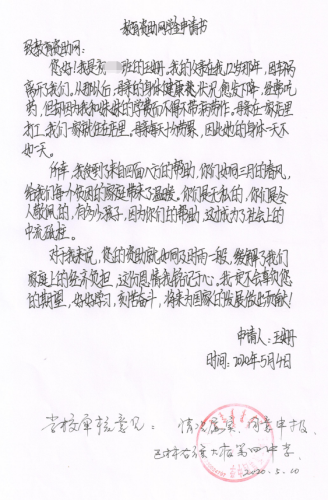 教育资助网助学申请书
致教育资助网：
您好！我是高 班的王姗。我的父亲在我12岁那年，因车祸
离开我们。从那以后，母亲的身体健康状况愈发下降，经常吃
药，但却因为我和妹妹的学费而不得不带病劳作。母亲在家里
打工，我们一家就住在 里。母亲每天 ，因此她的身体一天不
如一天。
所幸，我收到了来自四面八方的帮助，你们如同三月的春风，
给我们每个贫困的家庭带来了温暖。你们是无私的，你们是令
人敬佩的，有多少孩子，因为你们的帮助，这才成为了社会上的
中流砥柱。
对于我来说，您的资助就如同及时雨一般，缓解了我们
家庭上的经济负担，这份恩情我铭记于心。我定不会辜负您
的期望，好好学习，刻苦奋斗，将来为国家的发展做出贡献！
申请人：王姗
时间：2020年5月4日
学校审核意见：情况属实，同意申报
第四中学
2020.5.10